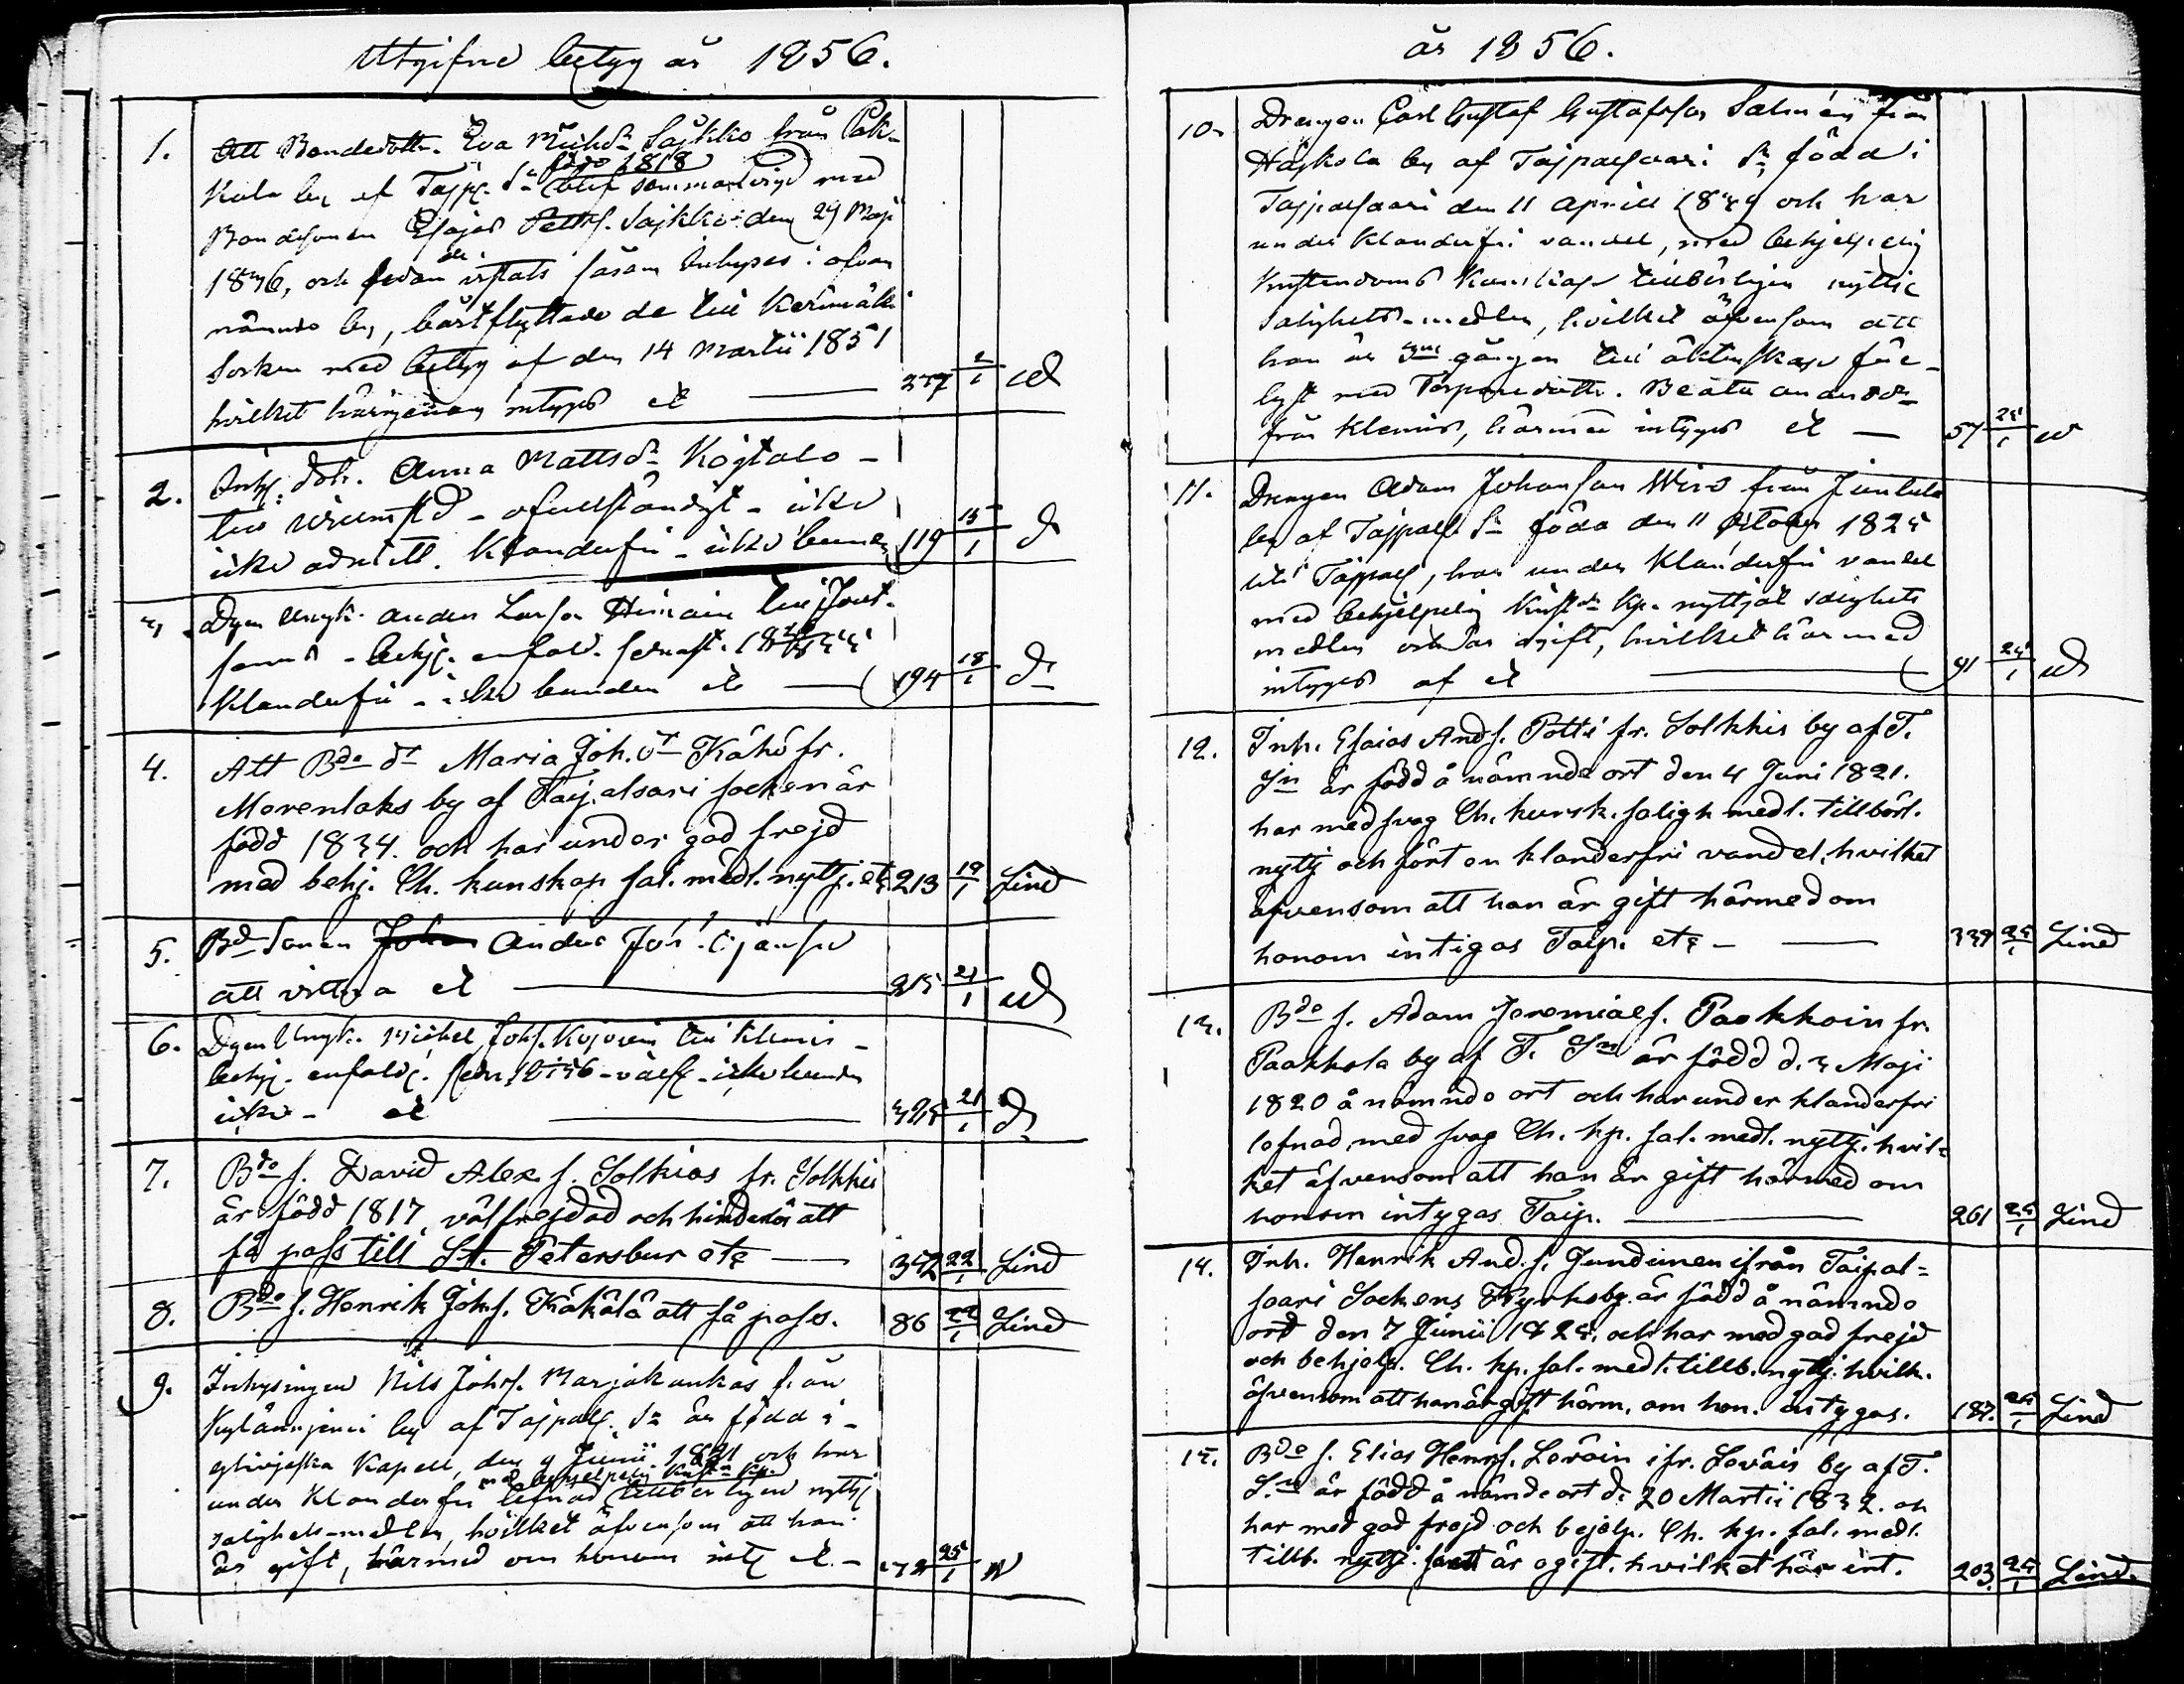 Utgifne betyg år 1856.
1. Att Bondedottr. Eva Michsdr Sajkko från Pak-
född 1818
kala by af Tajp. Sn blef sammanvigd med
Bondesonen Esajas Pettrs. Sajkko den 29 Maji
1846, och sedan de såsom Inhyses i ofvan
nämnde by, bortflyttade de till Kerimäki
Socken med betyg af den 14 Martii 1851
hvilket härigenom intygas etc 377 2/1
2. Inhs. dotr. Anna Mattsdr Kojtalo-
till - ofullständigt - icke
icke admitt. Klanderfri - icke bunden 119 15/1
3. Dgen Anders Larsson till Jout-
seno - behj. enfald.
Klanderfri - icke bunden etc 194 18/1
4. Att Bde dr Maria Joh.dr Kähö fr.
Merenlaks by af Taipalsari socken är
född 1834. och har under god frejd
med behj. Ch. kunskap sal. medl. nyttj. etc 213 19/1 Lind
5. Bde Sonen Anders Joh.
att vittna etc 215 21/1
6. Dgen Michel Johs. till Klemis -
behj. enfald. - icke bunden
icke - etc 21/1
7. Bde s. David Alex. s. Solkias fr. Solkkis
är född 1817, välfrejdad och hinderlös att
få pass till St. Petersbur etc 352 22/1 Lind
8. Bde s. Henrik Johs. Käkölä att få pass. 86 22/1 Lind
9. Inhysingen Nils Johs. Marjakankas från
Kylänniemi by af Tajpals. Sn är född i
Kapell, den 9 Junii 1821 och har
med behjelpelig Krist. kp.
under Klanderfri lefnad tillbörligen nyttj.
salighets-medlen, hvilket äfvensom att han
är gift, härmed om honom intyg. etc. - 25/1
år 1856.
10. Drengen Carl Gustaf Gustafsson Salmén från
Hajkola by af Tajpalsaari Sn född i
Tajpalsaari den 11 Aprill 1834 och har
under Klanderfri vandel, med behjelpelig
Kristendoms Kunskap tillbörligen nyttjt
Salighets-medlen, hvilket äfvensom att
han är 3ne gången till äktenskap för-
lyst med Torparedottr. Beata Andersdr
från Klemis, härmed intygas etc - 57 25/1
11. Drengen Adam Johansson Wiro från
by af Tajpals. Sn född den 11 October 1825
uti Tajpals, har under Klanderfri vandel
med behjelpelig Krist.d. Kp. nyttjat salighets
medlen och är ogift, hvilket härmed
intygas af etc 91 25/1
12. Inh. Esaias Ands. Pötti fr. Solkkis by af T.
Sn är född å nämnde ort den 4 Juni 1821.
har med svag Ch. kunsk. saligh. medl. tillbörl.
nyttj och fört en klanderfri vandel, hvilket
äfvensom att han är gift härmed om
honom intigas Taip. etc - 339 25/1 Lind
13. Bde s. Adam Jeremias s. Paakkoin fr.
Paakkola by af T. Sn är född d. 3 Maji
1820 å nämnde ort och har under klanderfri
lefnad med svag Ch. kp. sal. medl. nyttj. hvil=
ket äfvensom att han är gift härmed om
honom intygas Taip. 261 25/1 Lind
14. Inh. Henrik And. s. Jundunen ifrån Taipal=
saari Sockens Kyrkoby är född å nämnde
ort den 7 Junii 1825, och har med god frejd
och behjelp. Ch. kp. sal. medl. tillb. nyttj. hvilk.
äfvensom att han är gift härm. om hon. intygas. 187. 25/1 Lind
15. Bde s. Elias Henrs. Leväin ifr. Leväis by af T.
S.n är född å nämde ort d. 20 Martii 1832. och
har med god frejd och bejelp. Ch. kp. sal. medl.
tillb. nyttj. samt är ogift. hvilket här int. 203. 25/1 Lind.